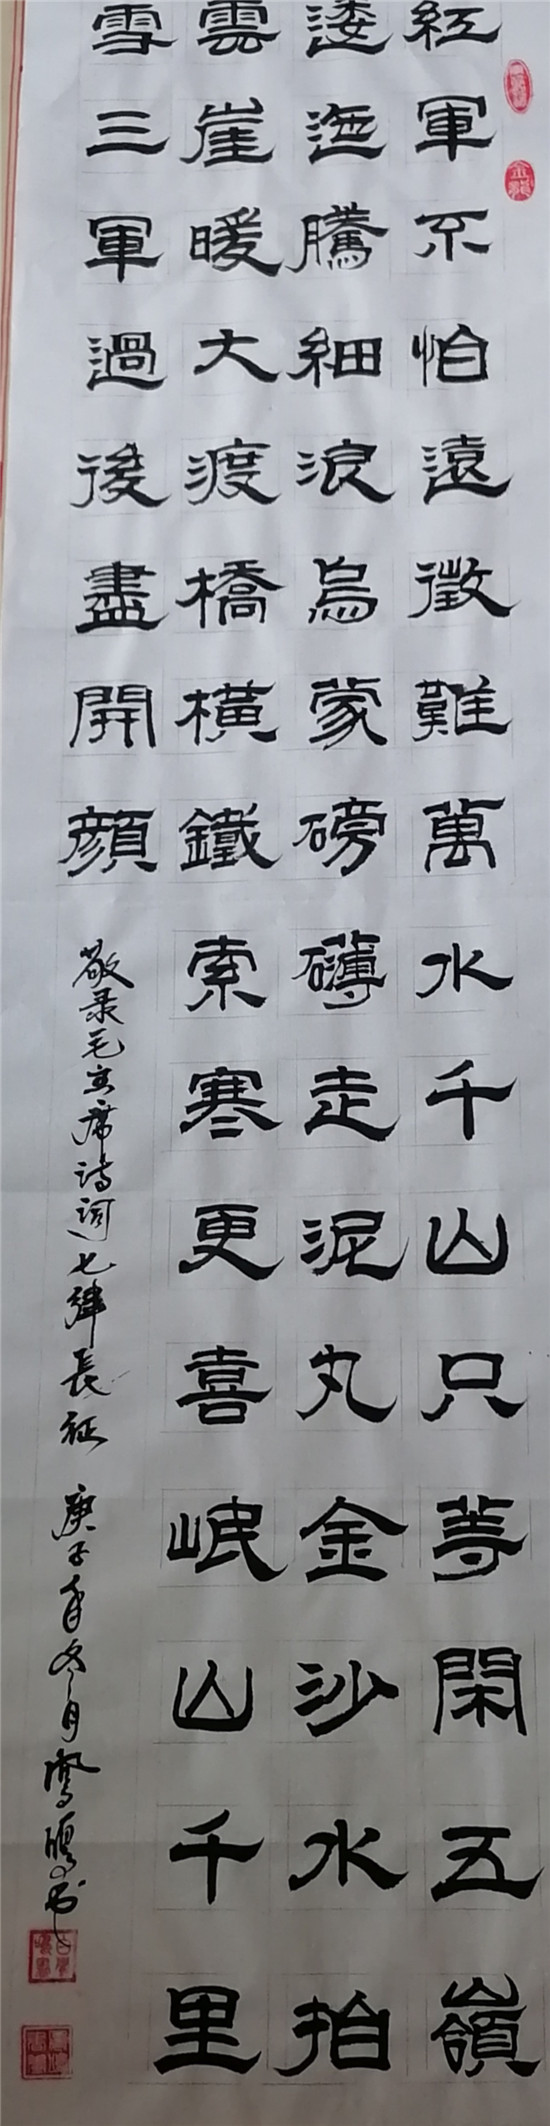 紅軍不怕遠徵難萬水千山只等閑五嶺
逶迤騰細浪烏蒙磅礴走泥丸金沙水拍
雲崖暖大渡橋橫鐵索寒更喜岷山千里
雪三軍過後盡開顏
敬录毛主席诗词七律長征 庚子年冬月